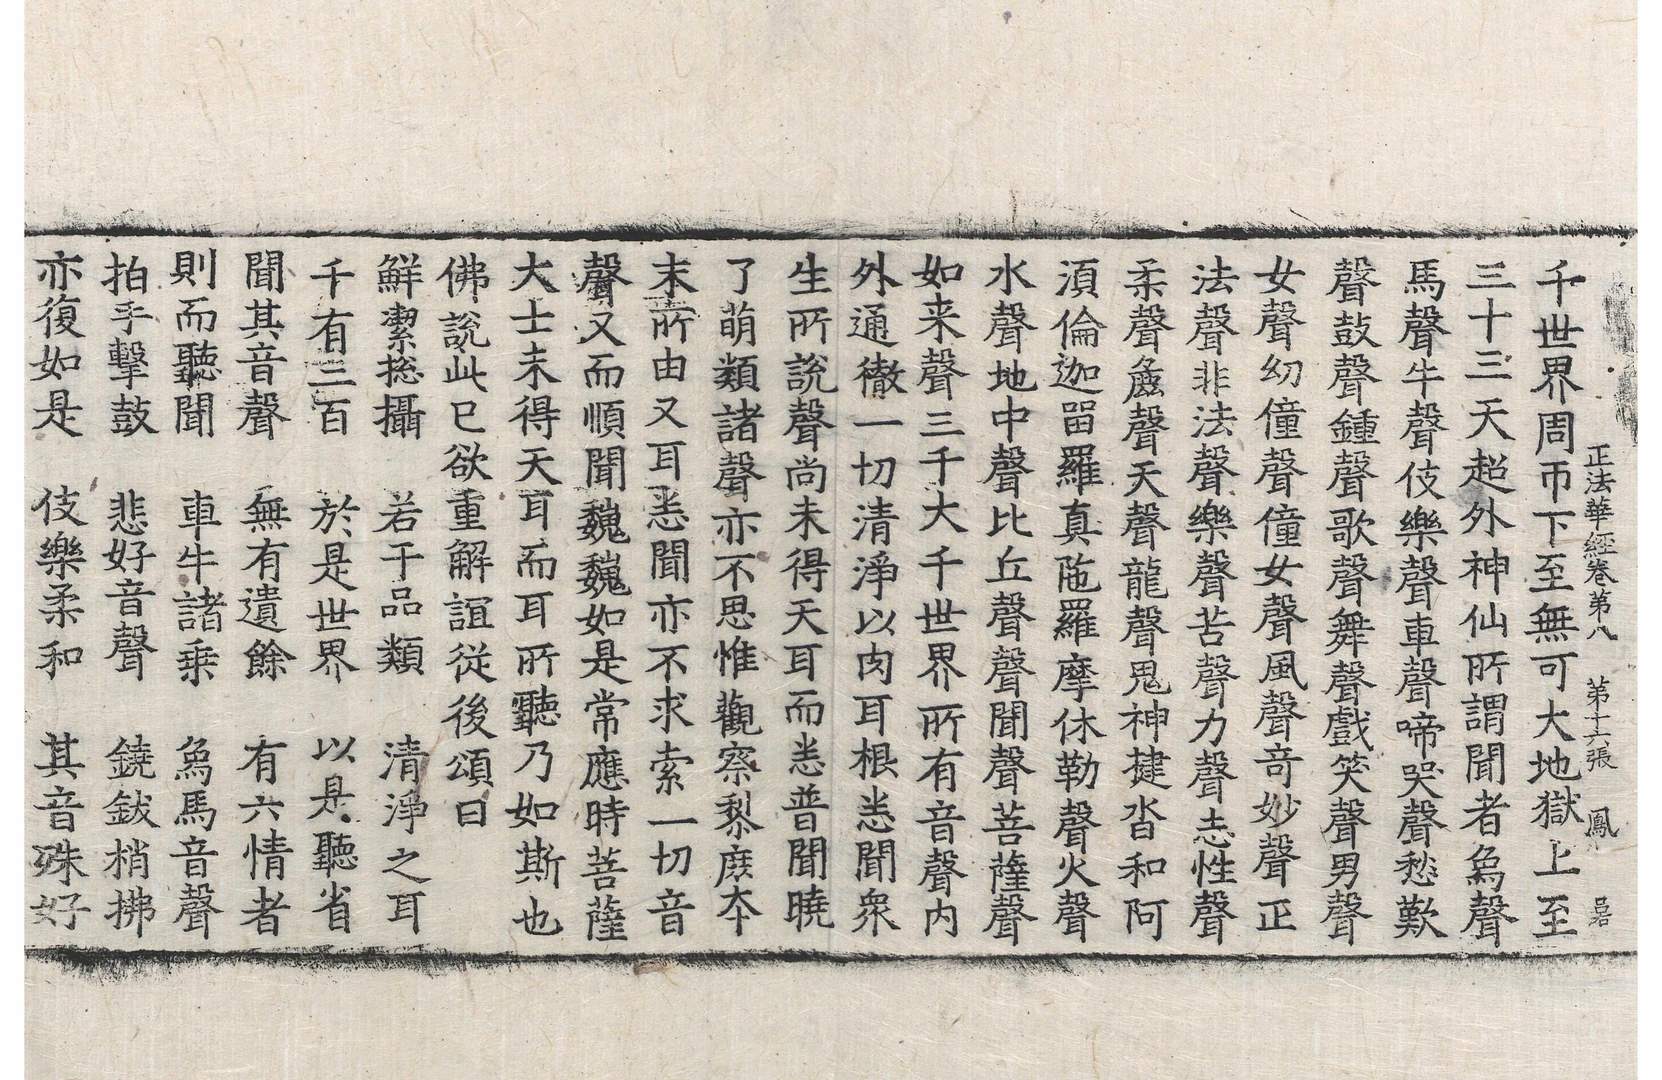 正法華經卷第八　第十六張　鳳
千世界周帀下至無可大地獄上至
三十三天超外神仙所謂聞者烏聲
馬聲牛聲伎樂聲車聲啼哭聲愁歎
聲鼓聲鍾聲歌聲舞聲戲笑聲男聲
女聲幼僮聲僮女聲風聲奇妙聲正
法聲非法聲樂聲苦聲力聲志性聲
柔聲麁聲天聲龍聲鬼神揵沓和阿
湏倫迦留羅真陁羅摩休勒聲火聲
水聲地中聲比丘聲聲聞聲菩薩聲
如来聲三千大千世界所有音聲内
外通徹一切清淨以肉耳根悉聞衆
生所說聲尚未得天耳而悉普聞曉
了萌類諸聲亦不思惟觀察黎庶本
末所由又耳悉聞亦不求索一切音
聲又而順聞魏魏如是常應時菩薩
大士未得天耳而耳所聽乃如斯也
佛說此已欲重解誼從後頌曰
鮮潔摠攝　若干品類　清淨之耳
千有三百　於是世界　以是聽省
聞其音聲　無有遺餘　有六情者
則而聽聞　車牛諸乗　烏馬音聲
拍手擊鼓　悲好音聲　鐃鈸梢拂
亦復如是　伎樂柔和　其音殊好